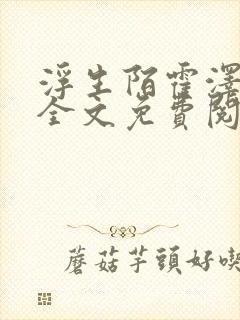 浮生陌霍澤
全文免費閱
蘑菇芋頭好喫